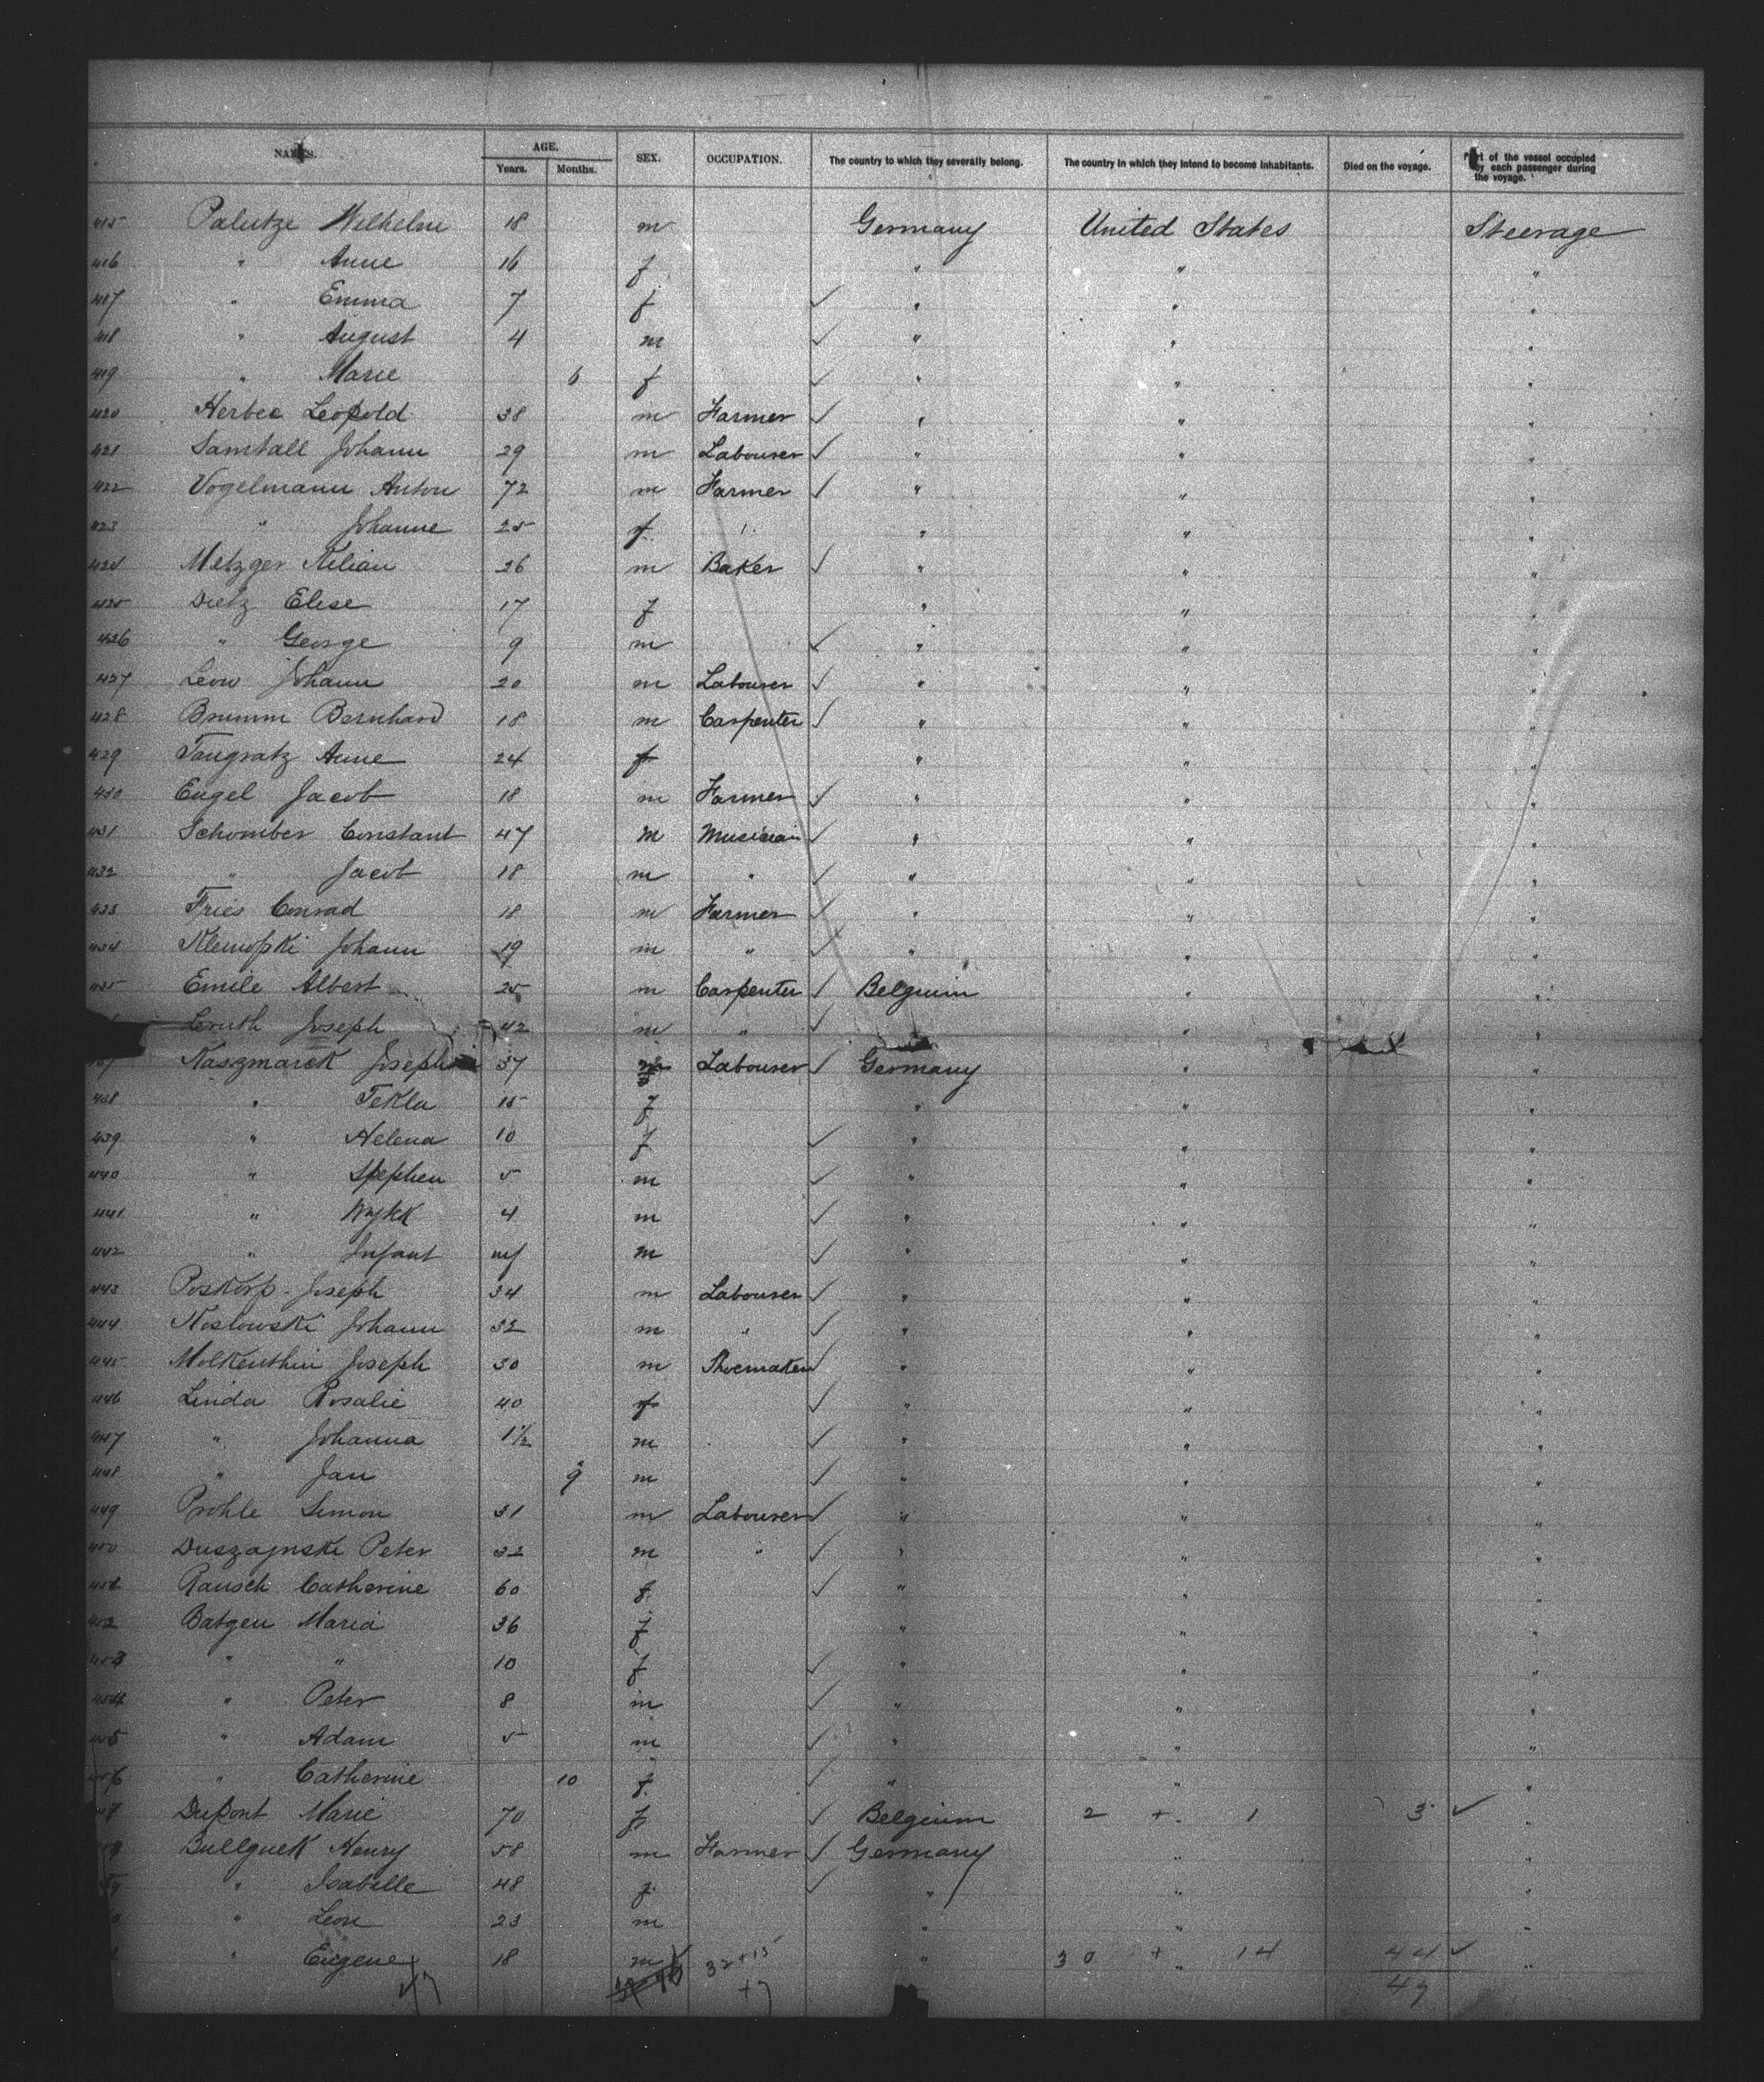 NAMES. AGE. SEX. OCCUPATION. The country to which they severally belong. The country in which they intend to become inhabitants. Died on the voyage. Part of the vessel occupied by each passenger during the voyage.
Years. Months.
415 Palutze Wilhelm 18 m Germany United States Steerage
416 " Anne 16 f " " "
417 " Emma 7 f ✓ " " "
418 " August 4 m ✓ " " "
419 " Marie 6 f ✓ " " "
420 Herbec Leopold 38 m Farmer ✓ " " "
421 Samtall Johann 29 m Labourer ✓ " " "
422 Vogelmann Anton 72 m Farmer ✓ " " "
423 " Johanne 25 f " " "
424 Metzger Kilian 26 m Baker ✓ " " "
425 Dietz Elise 17 f " " "
426 " George 9 m ✓ " " "
427 Leow Johann 20 m Labourer ✓ " " "
428 Brumm Bernhard 18 m Carpenter ✓ " " "
429 Tangratz Anne 24 f " " "
430 Engel Jacob 18 m Farmer ✓ " " "
431 Schomber Constant 47 m Musician ✓ " " "
432 " Jacob 18 m " ✓ " " "
433 Fries Conrad 18 m Farmer ✓ " " "
434 Klemofski Johann 19 m " ✓ " " "
435 Emile Albert 25 m Carpenter ✓ Belgium " "
Leruth Joseph 42 m " ✓ " "
Kaszmarck Joseph 37 f Labourer ✓ Germany " "
438 " Tekla 15 f " " "
439 " Helena 10 f ✓ " " "
440 " Stephen 5 m ✓ " " "
441 " Wojkk 4 m ✓ " " "
442 " Infant inf m ✓ " " "
443 Poskorp Joseph 34 m Labourer ✓ " " "
444 Koslowski Johann 32 m " ✓ " " "
445 Molkenthin Joseph 30 m Shoemaker ✓ " " "
446 Linda Rosalie 40 f ✓ " " "
447 " Johanna 1½ m ✓ " " "
448 " Jan 9 m ✓ " " "
449 Prohle Simon 31 m Labourer ✓ " " "
450 Duszajnski Peter 32 m " ✓ " " "
451 Rausch Catherine 60 f ✓ " " "
452 Batgen Maria 36 f " " "
453 " " 10 f ✓ " " "
454 " Peter 8 m ✓ " " "
455 " Adam 5 m ✓ " " "
456 " Catherine 10 f ✓ " " "
Dupont Marie 70 f ✓ Belgium 2 + 1 3 ✓ "
Bullguek Henry 58 m Farmer ✓ Germany " "
" Isabelle 48 f ✓ " " "
" Leon 23 m " " "
" Eugene 18 m 32+15 " 30 + 14 44 ✓ "
47 47 49